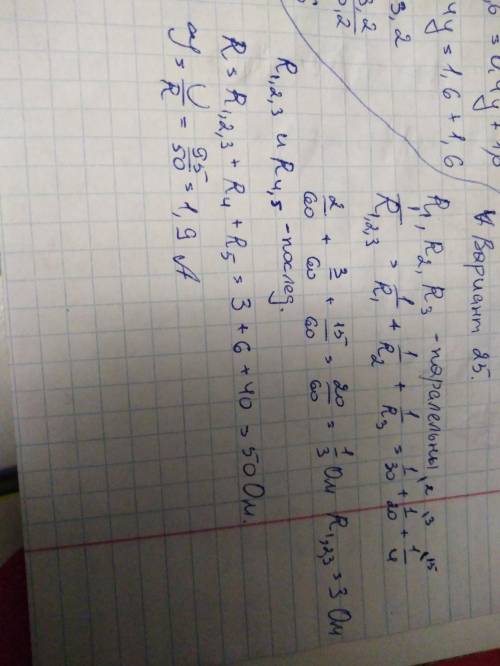 ,6 = 0,4y + 1,6
4y = 1,6 + 1,6
3,2
3,2
0,2
Вариант 25.
R₁, R₂, R₃ - паралельны
1/R₁,₂,₃ = 1/R₁ + 1/R₂ + 1/R₃ = 1/30 ⁽² + 1/20 ⁽³ + 1/4 ⁽¹⁵
2/60 + 3/60 + 15/60 = 20/60 = 1/3 Ом R₁,₂,₃ = 3 Ом
R₁,₂,₃ и R₄,₅ - послед.
R = R₁,₂,₃ + R₄ + R₅ = 3 + 6 + 40 = 50 Ом.
У = U/R = 95/50 = 1,9 А